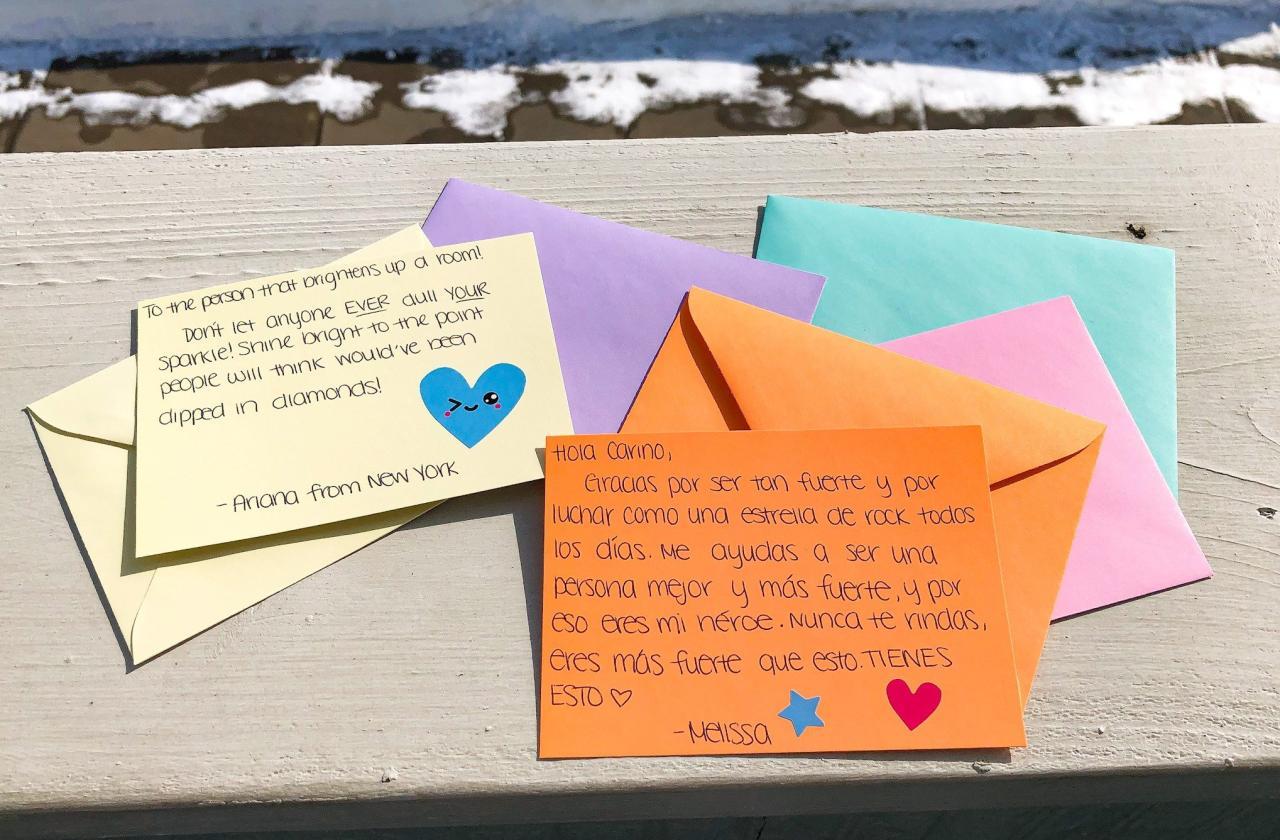 To the person that brightens up a room!
Don't let anyone EVER dull YOUR
sparkle! Shine bright to the point
people will think would've been
dipped in diamonds!
- Ariana from NEW YORK
Hola Carino,
Gracias por ser tan fuerte y por
luchar como una estrella de rock todos
los días. Me ayudas a ser una
persona mejor y más fuerte, y por
eso eres mi néroe. Nunca te rindas,
eres más fuerte que esto. TIENES
ESTO ♡
- Melissa